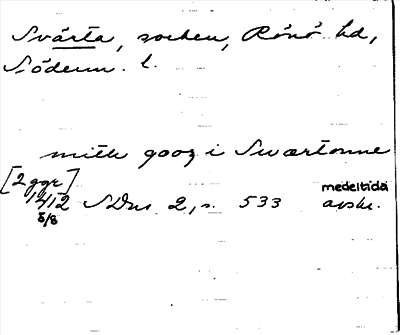 Svärta, socken, Rönö hd,
Söderm. l.
mith gooz i Swærtonne
[2 ggr]
1412 SDns 2, s. 533 medeltida avskr.
8/8